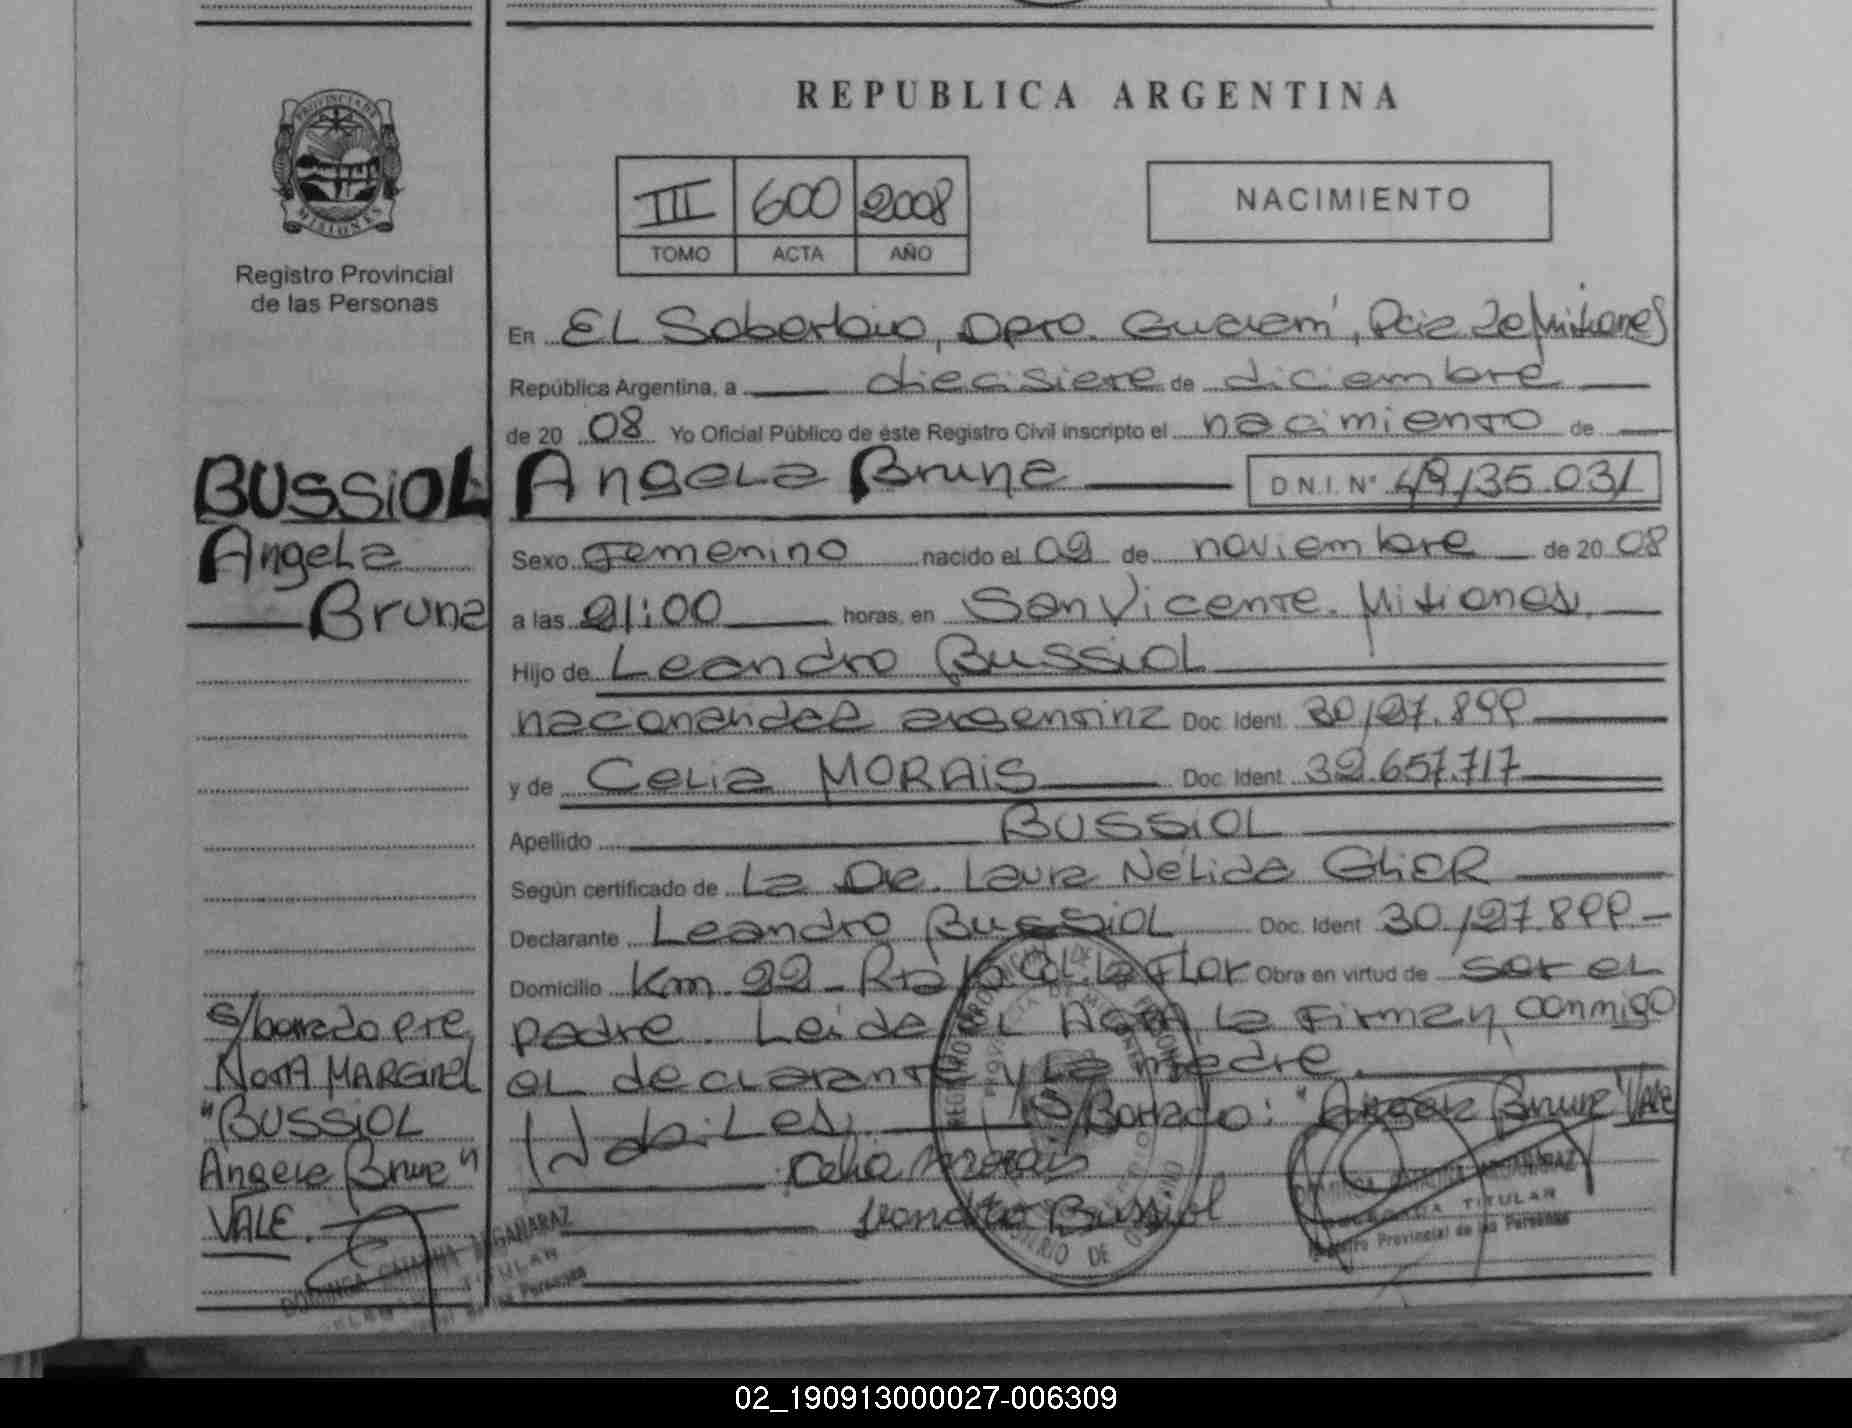 REPUBLICA ARGENTINA
PROVINCIA DE
MISIONES
Registro Provincial
de las Personas
III 600 2008
TOMO ACTA AÑO
NACIMIENTO
En El Soberbio, Dpto. Guaraní, Pcia de Misiones
República Argentina, a diecisiete de diciembre
de 20 08 Yo Oficial Público de éste Registro Civil inscripto el nacimiento de
BUSSIOL
Angela
Bruna
Angela Bruna D N.I. N° 49135.031
Sexo Femenino nacido el 09 de noviembre de 20 08
a las 21:00 horas, en San Vicente. Misiones.
Hijo de Leandro Bussiol
argentina Doc. Ident. 30.127.899
y de Celia MORAIS Doc. Ident. 32.657.717
Apellido BUSSIOL
Según certificado de La Dra. Laura Nélida GLIER
Declarante Leandro Bussiol Doc. Ident 30.127.899.-
Domicilio Km. 22 - La Flor Obra en virtud de ser el
padre. Leida el Acta, la firman conmigo
el declarante y la madre.
s/borrado
NOTA MARGINAL
"BUSSIOL
Angela Bruna"
VALE.
s/Borrado: "Angela Bruna" Vale
Celia Morais
Leandro Bussiol
DOMINGA CATALINA ARGAÑARAZ
TITULAR
Registro Provincial de las Personas
DOMINGA CATALINA ARGAÑARAZ
TITULAR
de las Personas
02_190913000027-006309